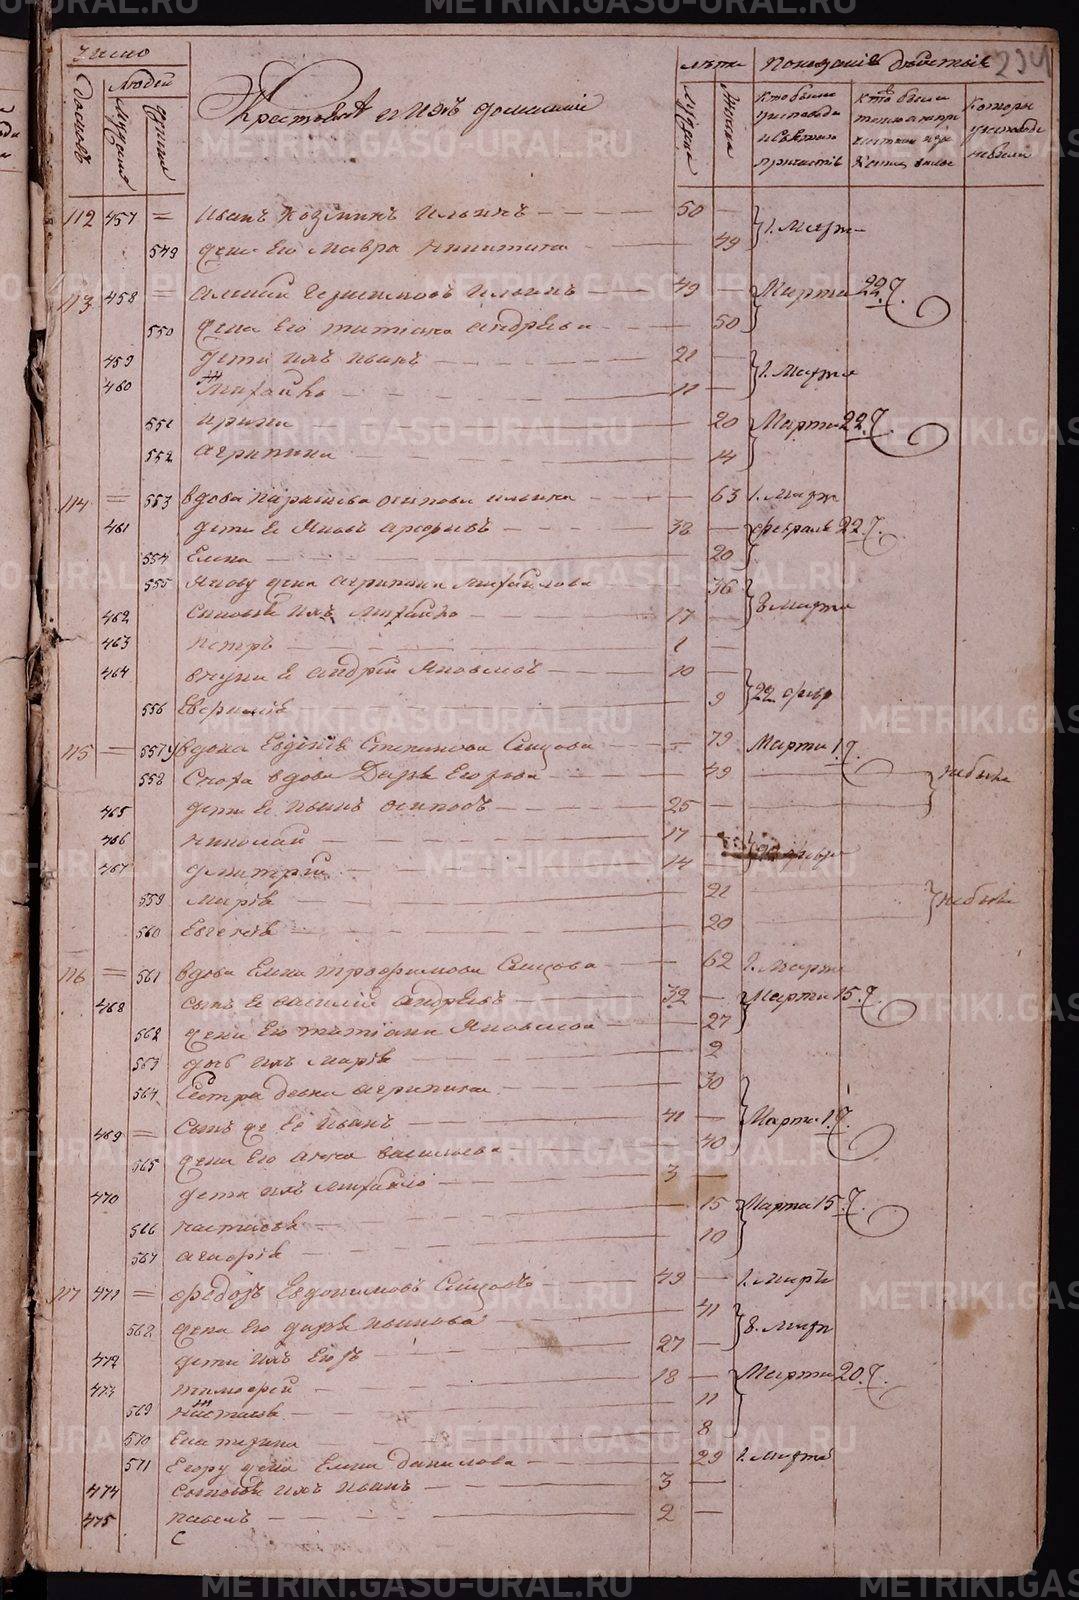 METRIKI.GASO-URAL.RU
число
людей
домовъ
мужска
женска
Крестьяня и ихъ домашнiе
лѣта
мужска
женска
Показанiе дѣйства
кто были у исповеди и святаго причастiя
кто были токмо
которы у исповеди небыли
112 457 = Иванъ Козминъ Ильинъ 50 —
549 жена Его Мавра Никитина 49 1. Март
113 458 = Алексей Герасимовъ Ильинъ 49 — Марта 22.
550 жена Его татiана андреева 50
459 дети ихъ иванъ 21 —
460 Михайло 11 — 1. Марта
551 ирина 20 Марта 22.
552 агрипина 14
114 = 553 вдова парасковья осипова ильина 63 1. Март
461 дети Ее Яковъ арефьевъ 38 — февраля 22.
554 Елена 20
555 Якову жена агрипина михайлова 36
462 сыновья ихъ михайло 17 — 8 марта
463 петръ 1 —
464 внуки Ее андрей Яковлевъ 10 —
556 Евфимiя 9 22 февр
115 = 557 вдова Евдокiя Степанова Сысоева 79 Марта 1.
558 Сноха вдова Дарья Егорова 49 небыли
465 дети Ее иванъ осиповъ 25 —
466 николай 17 —
467 дмитрей 14
559 марiя 21 небыли
560 Евгенiя 20
116 = 561 вдова Елена трофимова Сысоева 62 1. Марта
468 сынъ Ее василiй андреевъ 32 — Марта 15.
562 жена Его татiана Яковлева 27
563 дочь ихъ марiя 2
564 Сестра девка агрипина 30
469 = Сынъ же Ее иванъ 41 — Марта 1.
565 жена Его анна васильева 40
470 дети ихъ михайло 3 —
566 настасья 15 Марта 15.
567 агафiя 10
117 471 = федоръ Евдокимовъ Сысоевъ 49 — 1. Март
568 жена Его дарья иванова 41
472 дети ихъ Егоръ 27 — 8. март
473 тимофей 18 — Марта 20.
569 настасья 11
570 Екатерина 8
571 Егору жена Елена данилова 29 1. Марта
474 сыновья ихъ иванъ 3 —
475 павелъ 2 —